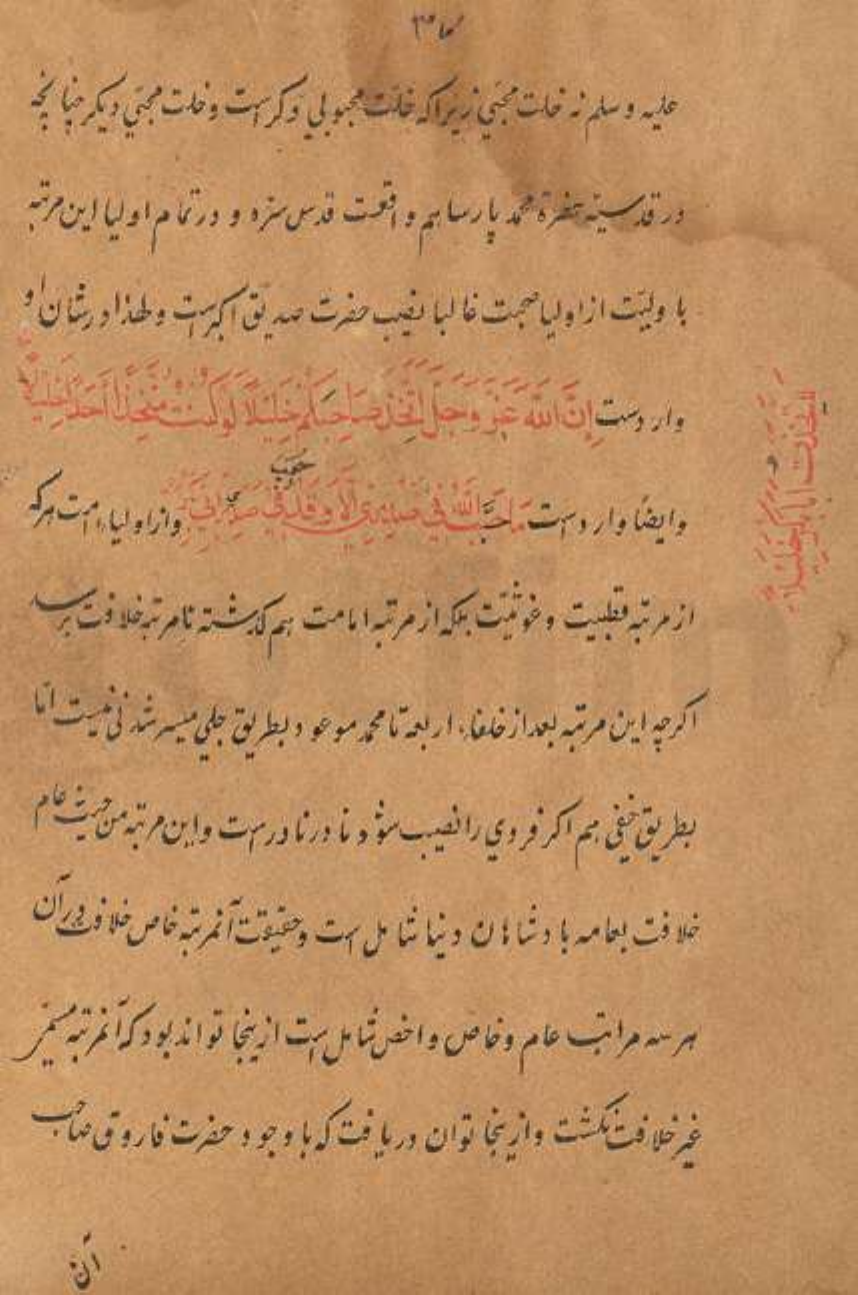 علیه وسلم نه خلت محبّی زیراکه خلّت محبوبی دکرست وخلت محبّی دیکر چنانچه
در قدسیّه حضرة محمد پارسا هم واقعست قدس سرّه و در تمام اولیا این مرتبه
با ولیّت از اولیا صحبت غالبا نصیب حضرت صدیق اکبرست ولهذا در شان او
واردست إنّ الله عزّ وجلّ اتّخذ صاحبکم خلیلاً لوکنت متّخذاً أحداً خلیلاً
لاتخذت ابابکر خلیلاً
وایضا واردست ما صبّ الله فی صدری إلّا وقد فی صدر واز اولیاء امت هرکه
از مرتبه قطبیت وغوثیّت بلکه از مرتبه امامت هم کذشته تا مرتبه خلافت برسد
اکرچه این مرتبه بعد از خلفاء اربعه تا محمد موعود بطریق جلی میسر شدنی نیست امّا
بطریق خفی هم اکر فردی را نصیب شود نادر نادرست واین مرتبه من حیث عام
خلافت بعامه بادشاهان دنیا شاملست وحقیقت آنمرتبه خاص خلافت در آن
هر سه مراتب عام وخاص واخص شاملست ازینجا تواند بود که آنمرتبه
غیر خلافت نکشت وازینجا توان دریافت که با وجود حضرت فاروق صاحب
آن